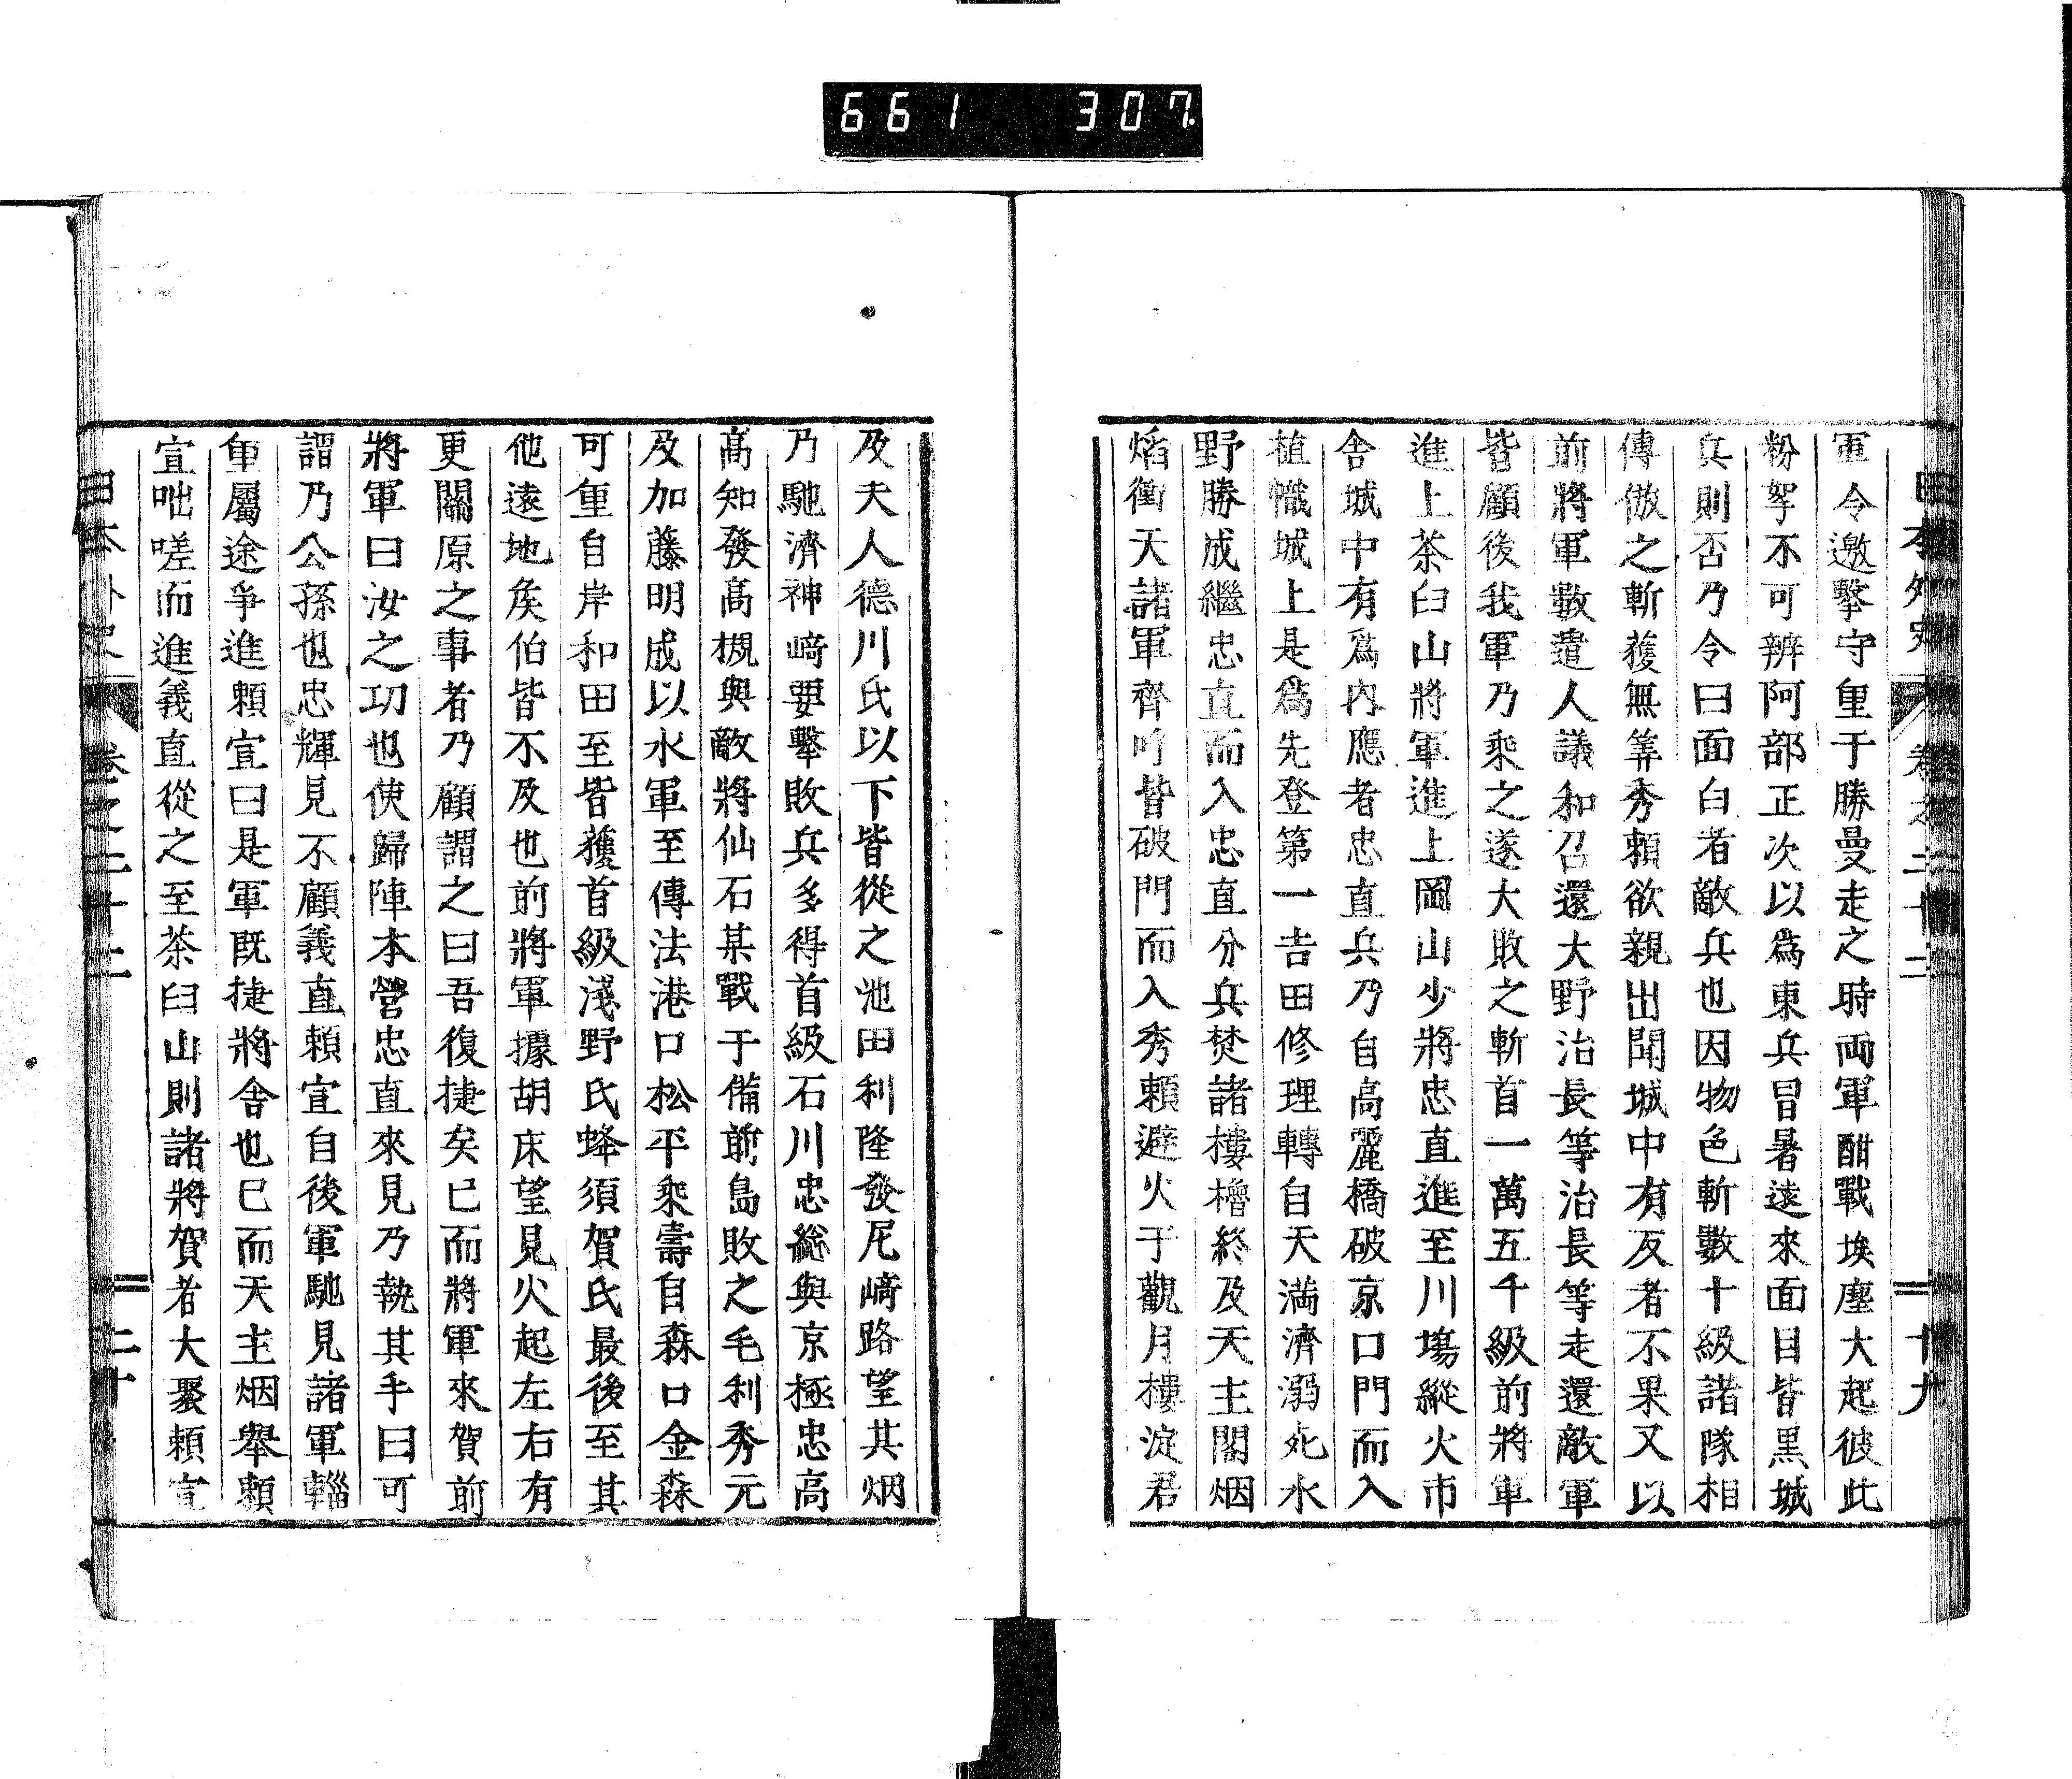 661 307
日本外史 卷之二十二 十九
軍令邀擊守重于勝曼走之時兩軍酣戰埃塵大起彼此
粉挐不可辨阿部正次以爲東兵冒暑遠來面目皆黑城
兵則否乃令曰面白者敵兵也因物色斬數十級諸隊相
傳倣之斬獲無筭秀賴欲親出聞城中有反者不果又以
前將軍數遣人議和召還大野治長等治長等走還敵軍
皆顧後我軍乃乘之遂大敗之斬首一萬五千級前將軍
進上茶臼山將軍進上岡山少將忠直進至川塲縱火市
舍城中有爲內應者忠直兵乃自高麗橋破京口門而入
植幟城上是爲先登第一吉田修理轉自天滿濟溺死水
野勝成繼忠直而入忠直分兵焚諸樓櫓終及天主閣烟
焰衝天諸軍齊吶皆破門而入秀賴避火于觀月樓淀君
及夫人德川氏以下皆從之池田利隆發尼﨑路望其烟
乃馳濟神﨑要擊敗兵多得首級石川忠總與京極忠高
高知發高槻與敵將仙石某戰于備前島敗之毛利秀元
及加藤明成以水軍至傳法港口松平乘壽自森口金森
可重自岸和田至皆獲首級淺野氏蜂須賀氏最後至其
他遠地矦伯皆不及也前將軍據胡床望見火起左右有
更關原之事者乃顧謂之曰吾復捷矣已而將軍來賀前
將軍曰汝之功也使歸陣本營忠直來見乃執其手曰可
謂乃公孫也忠輝見不顧義直賴宣自後軍馳見諸軍輜
重屬途爭進賴宣曰是軍既捷將舍也已而天主烟舉賴
宣咄嗟而進義直從之至茶臼山則諸將賀者大聚賴宣
日本外史 卷之二十二 二十